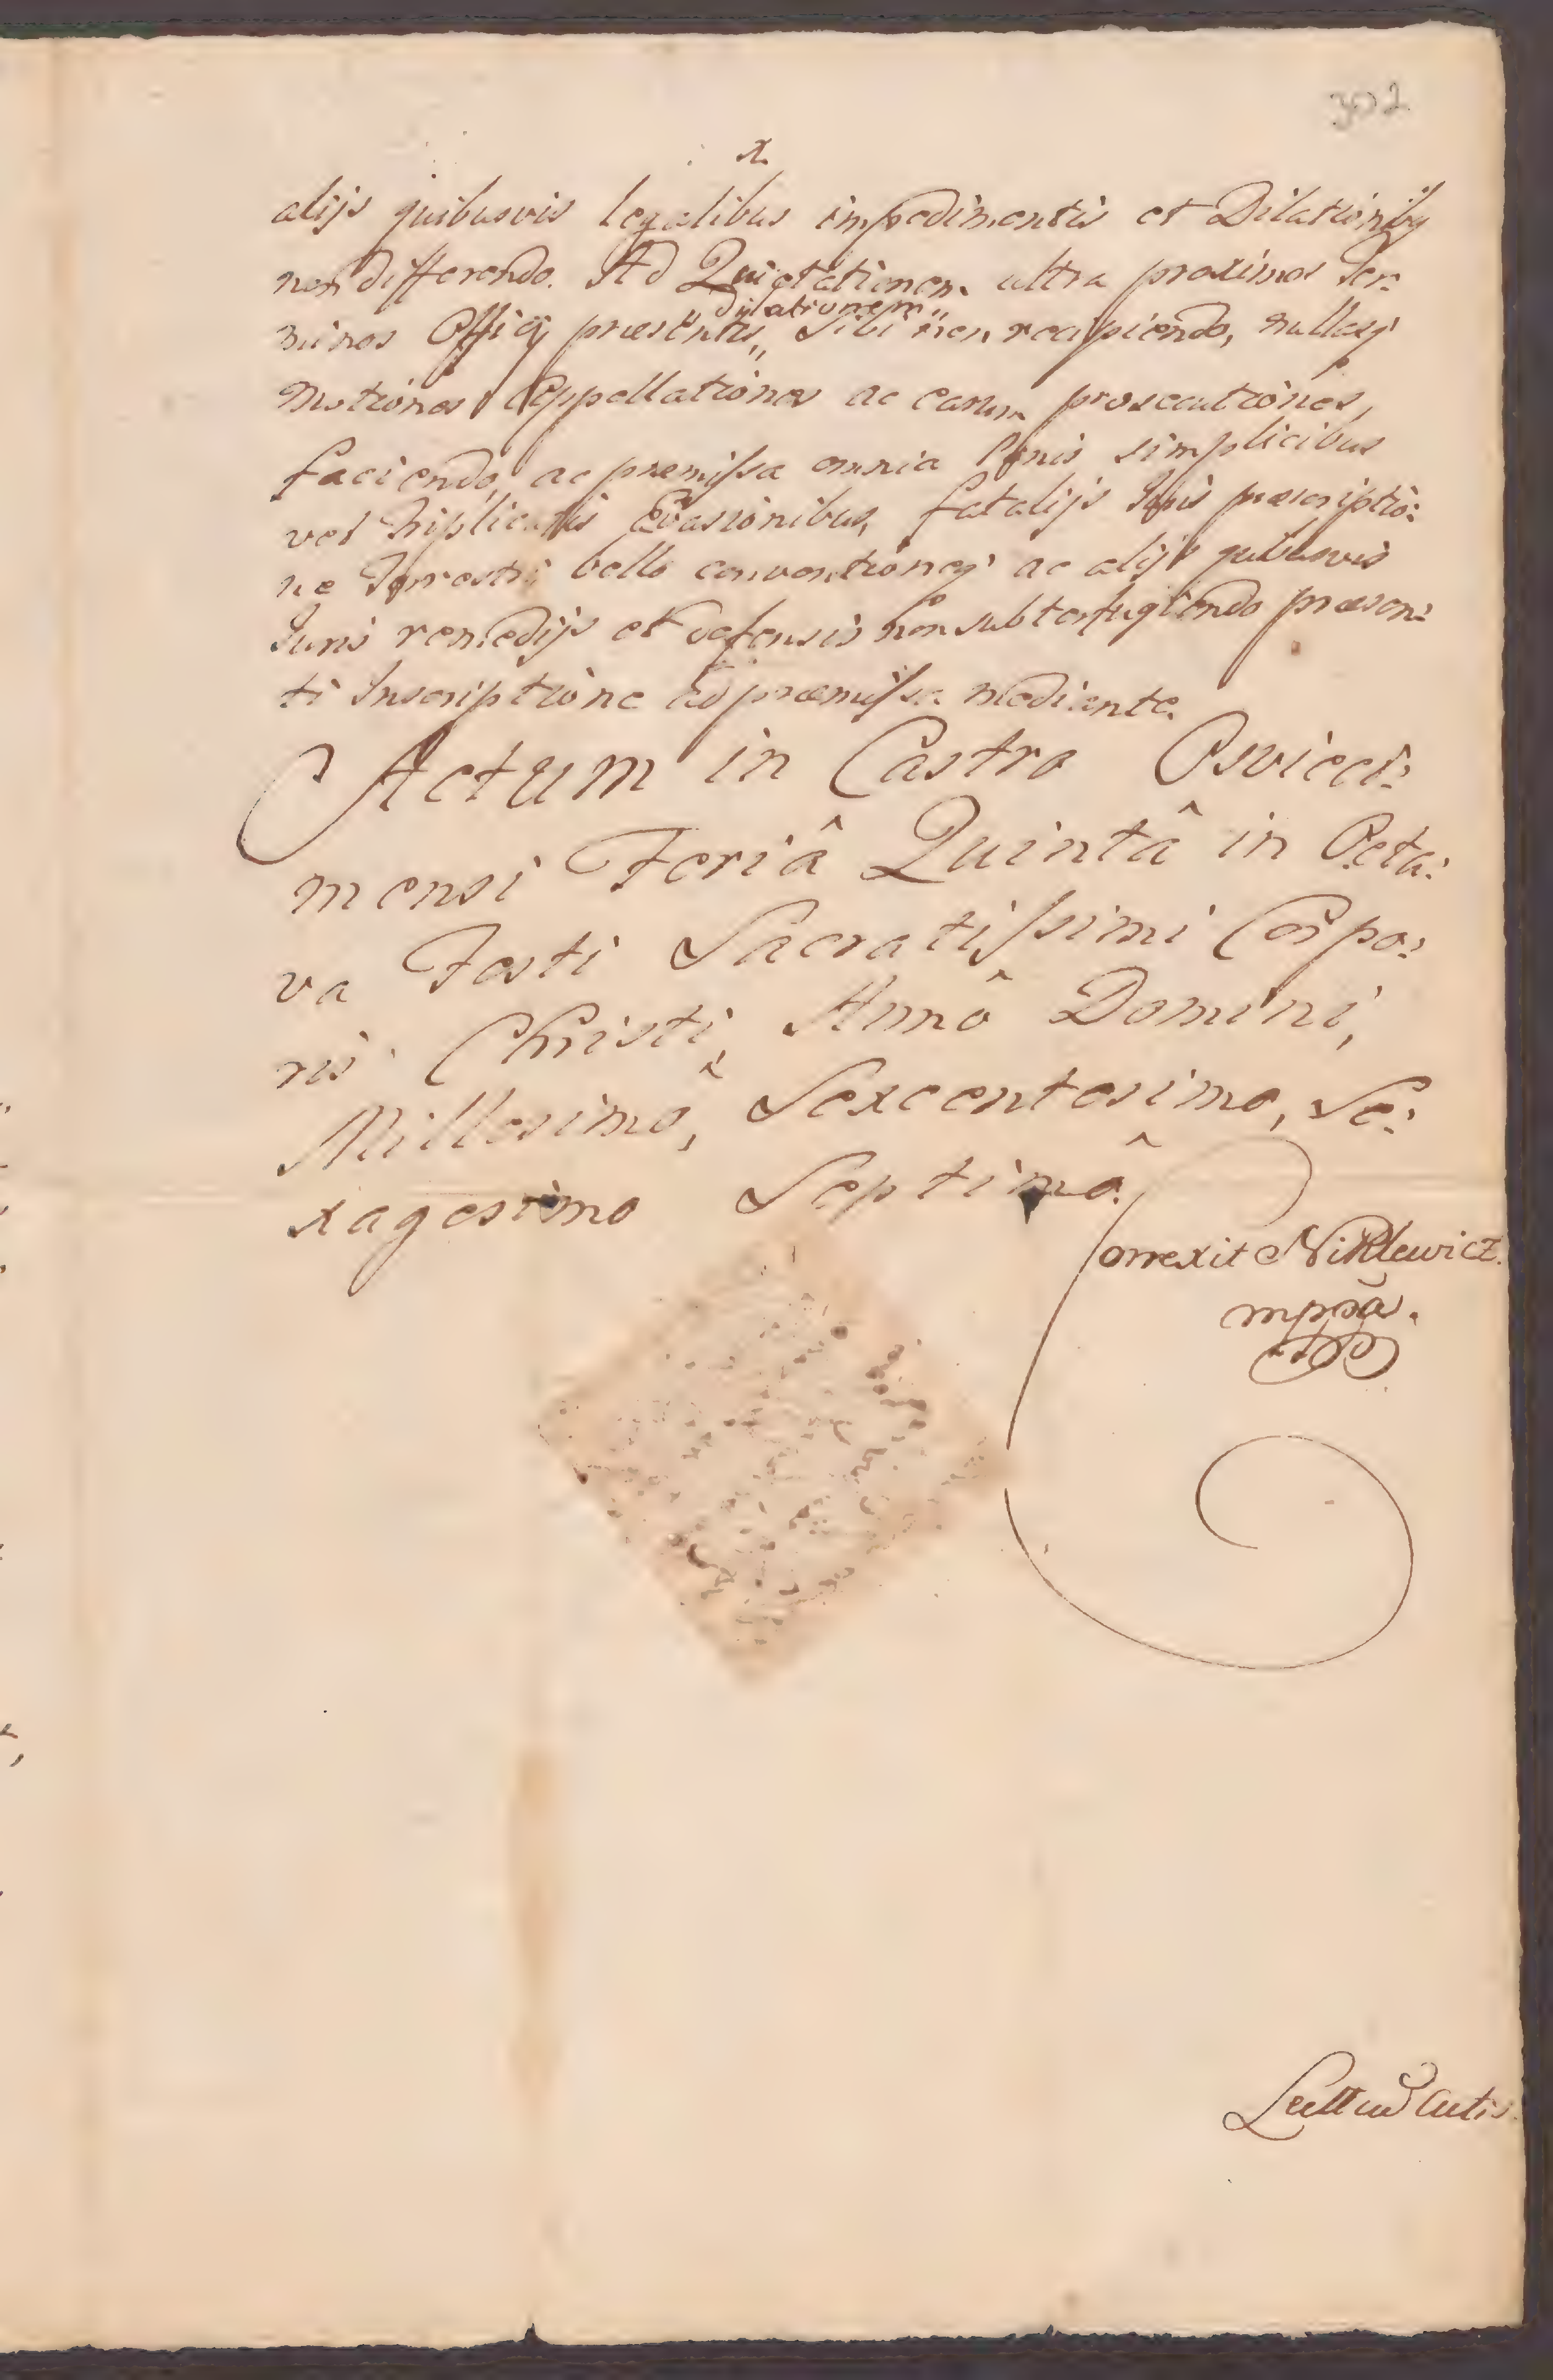 302
x
alijs quibusvis legalibus impedimentis et Dilationibꝫ
non differendo. Ad Quietationem ultra proximos Ter:
dilationem
minos Officij præsentis,, Sibi non recipiendo, nullasq́
Motiones Appellationes ac earum prosecutiones,
faciendo ac præmissa omnia simplicibus
vel triplicatis Evasionibus, fatalijs Juris præscriptio:
ne Terrestri bello conventioneq́ ac alijs quibusvis
Juris remedijs et defensis non subterfugiendo præsen:
ti Inscriptione ad præmissa mediante.
Actum in Castro Osvieci:
mensi Feriâ Quintâ in Octa:
va Festi Sacratissimi Corpo:
ris Christi, Annô Domini,
Millesimô, Sexcentesimo, Se:
xagesimo Septimô.
Correxit Niklewicz
mppa.
Actis